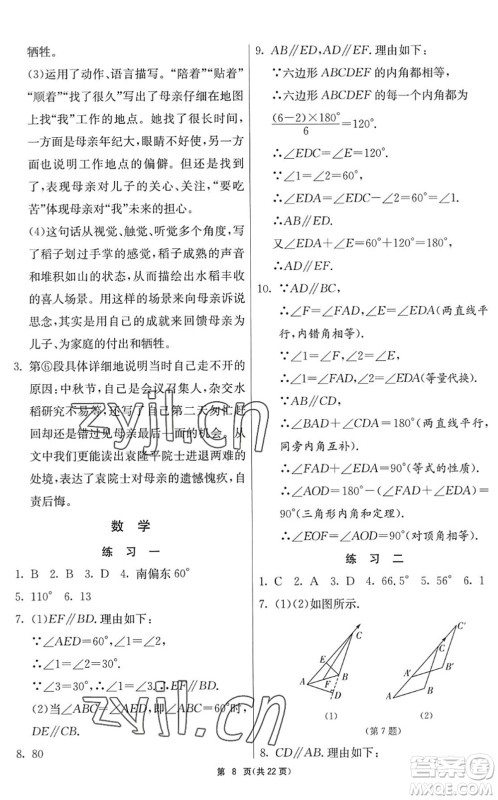 牺牲。
(3)运用了动作、语言描写。“陪着”“贴着”
“顺着”“找了很久”写出了母亲仔细在地图
上找“我”工作的地点。她找了很长时间,
一方面是母亲年纪大,眼睛不好使,另一方
面说明工作地点的偏僻。但她还是要找,
体现母亲对儿子的关心、关注,“要吃
苦”体现母亲对“我”未来的担心。
(4)这句话从视觉、触觉、听觉多个角度,描
写了稻子划过手掌的感觉,稻子成熟的声音
和堆积如山的状态,从而描绘出水稻丰收
的喜人场景。用这样的成果来向母亲诉说
思念,其实就是用成就来回馈母亲为
儿子、为家庭的付出和牺牲。
3. 第⑥段具体详细地说明当时自己走不开的
原因:中秋节,一个会议召集人,杂交水
稻研究不易等,还写了自己第二天匆忙赶
回却还是错过见母亲最后一面的机会。从
文中我们更能读出袁隆平院士进退两难的
处境,表达了袁院士对母亲的遗憾愧疚,自
责后悔。
数学
练习一
1. B 2. B 3. D 4. 南偏东60°
5. 110° 6. 13
7. (1)EF∥BD. 理由如下:
∵∠AED=60°,∠1=60°,
∴∠AED=∠1,∴EF∥BD.
(2)当∠AED=∠ABD,即∠ABD=60°时,
DE∥CB.
8. 80
9. AB∥ED,AD∥EF. 理由如下:
∵六边形ABCDEF的内角都相等,
∴六边形ABCDEF的每一个内角都为
(6-2)×180°/6=120°.
∴∠EDC=∠E=120°.
∵∠1=∠2=60°,
∴∠EDA=∠EDC-∠2=60°.
∴∠1=∠EDA.
∴AB∥ED.
又∠EDA+∠E=60°+120°=180°,
∴AD∥EF.
10. ∵AD∥BC,
∴∠F=∠FAD,∠E=∠EDA(两直线平
行,内错角相等).
∵∠E=∠F,
∴∠FAD=∠EDA(等量代换).
∵AB∥CD,
∴∠BAD+∠CDA=180°(两直线平行,
同旁内角互补).
∴∠FAD+∠EDA=90°(等式的性质).
∴∠AOD=180°-(∠FAD+∠EDA)=
90°(三角形内角和定理).
∴∠EOF=∠AOD=90°(对顶角相等)
练习二
1. C 2. A 3. D 4. 66.5° 5. 23° 6. 1
7. (1)(2)如图所示.
C
E
B
A F
D
C C′
A′ B′
A
B
(1) (2)
(第7题)
8. CD∥AB. 理由如下:
第 8 页(共22页)
zyjl.cn
zyjl.cn
作业精灵